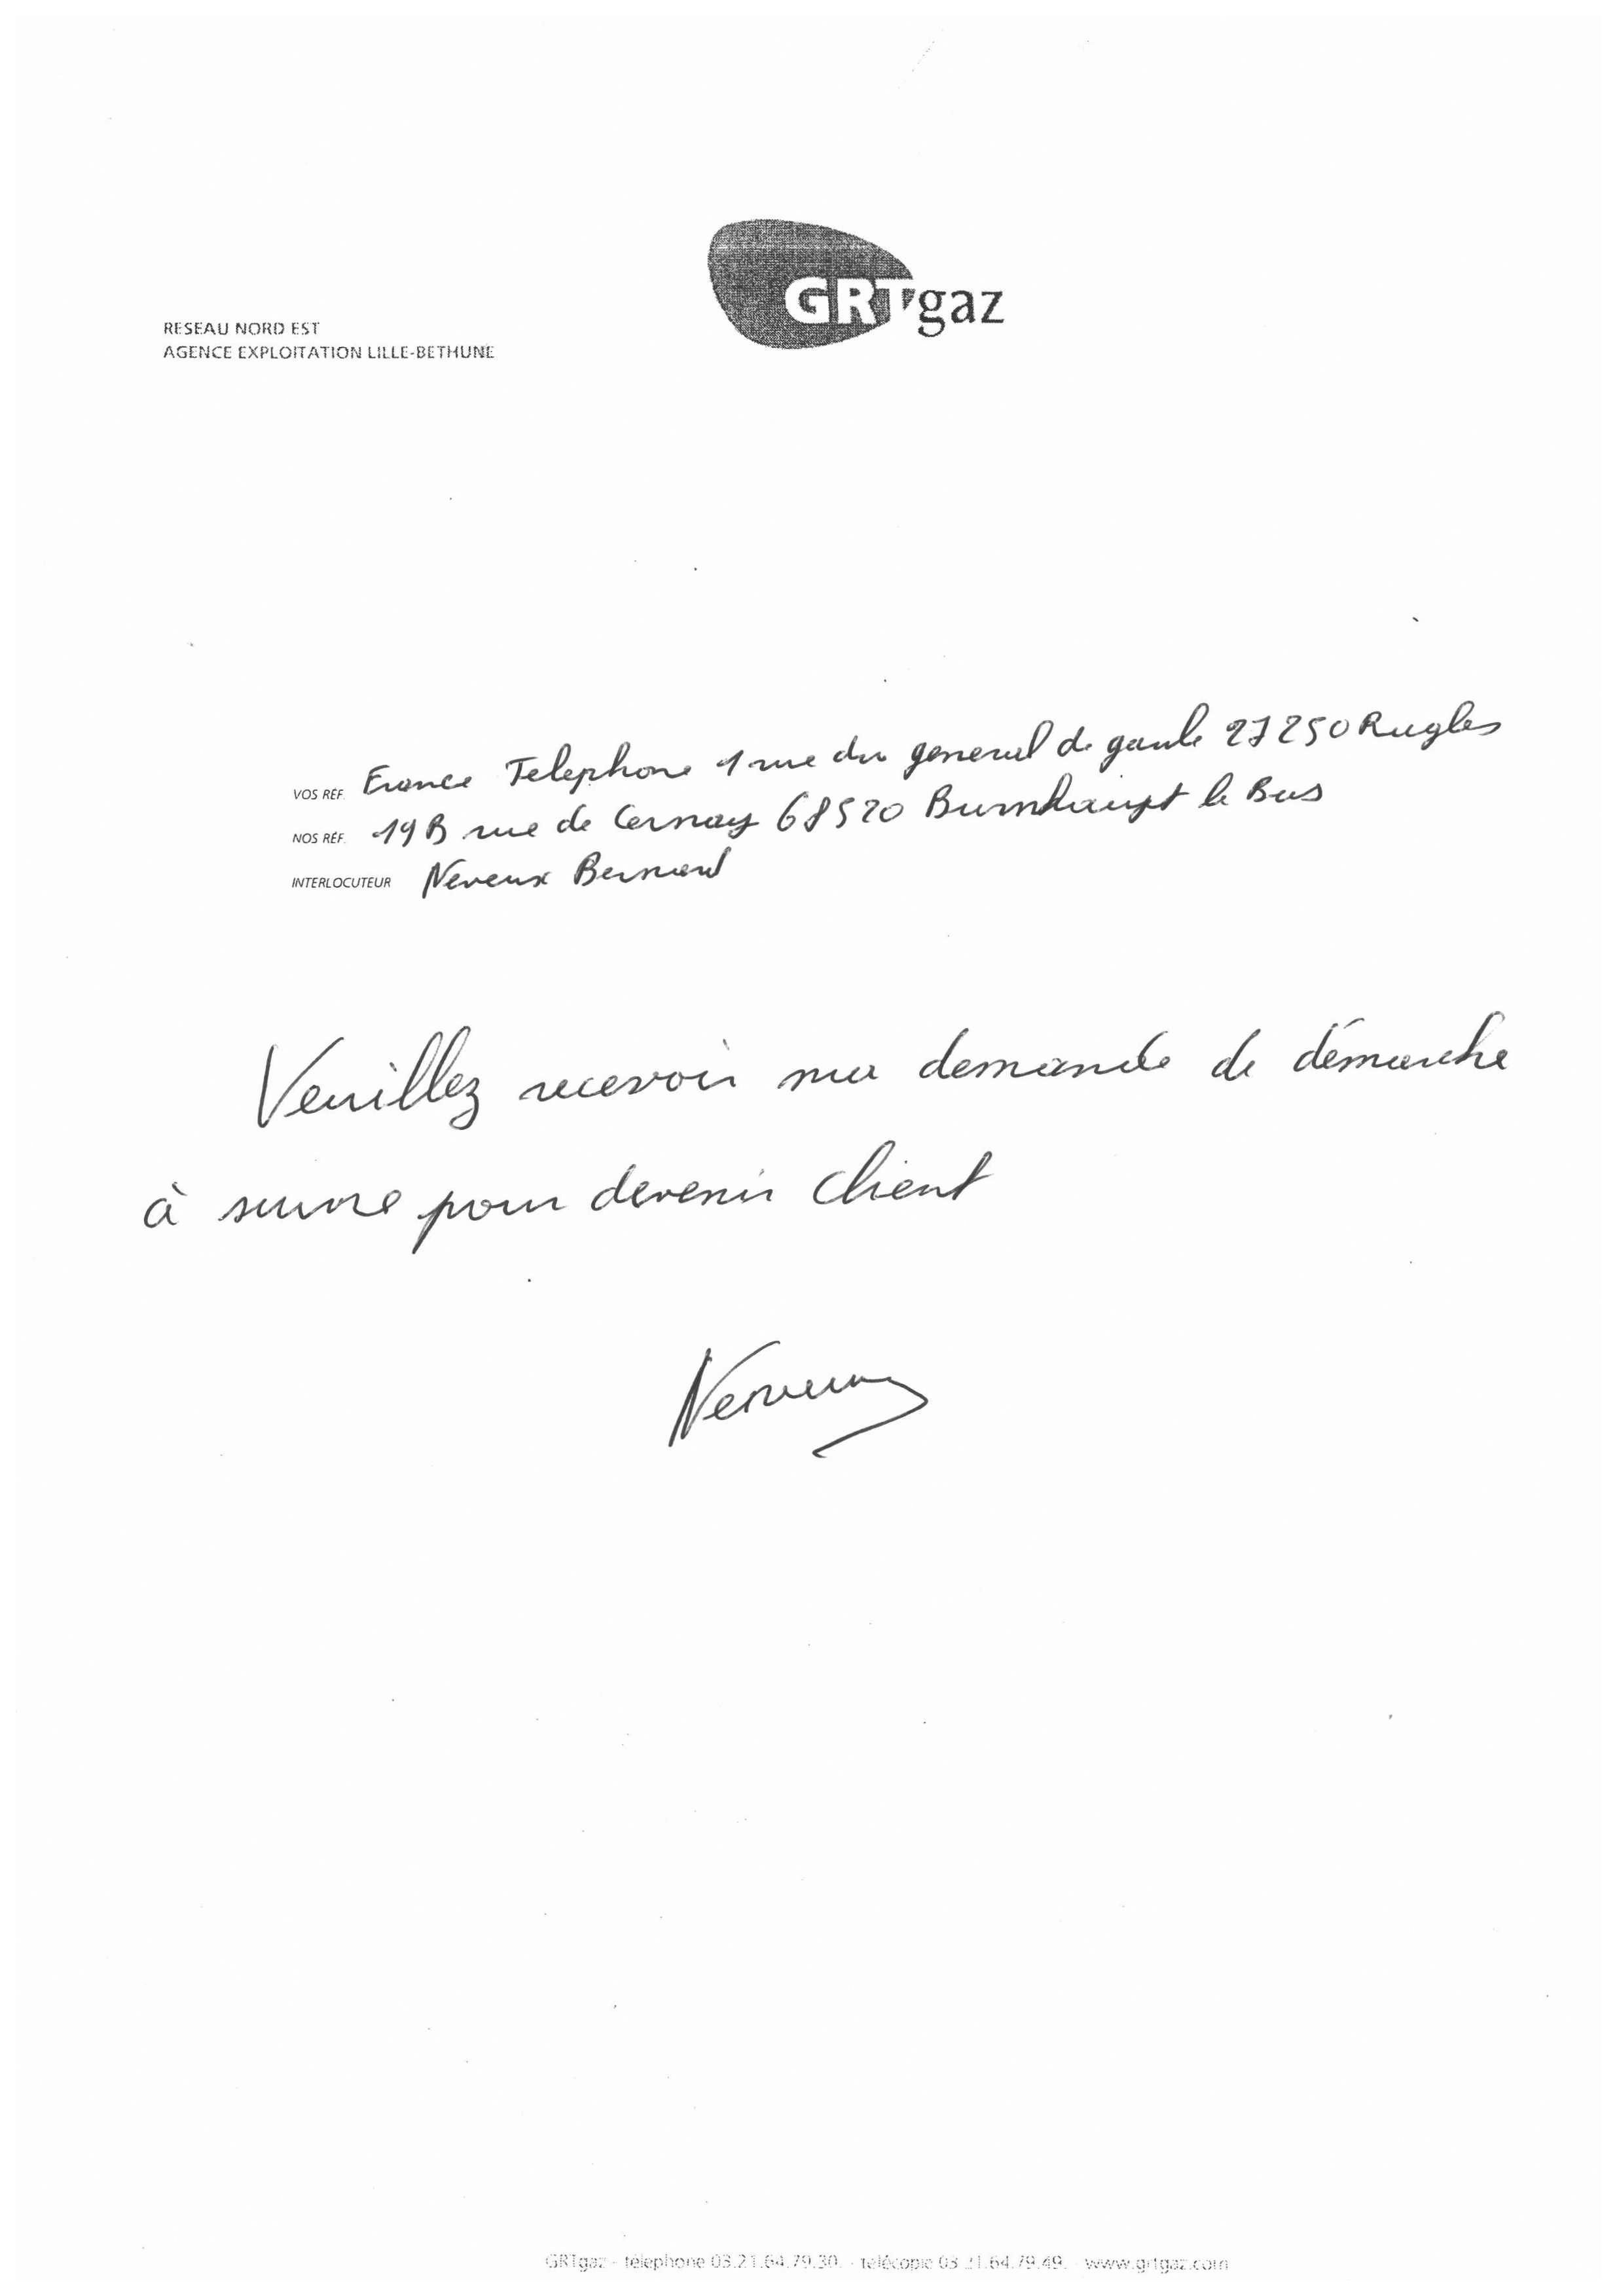 GRTgaz
RESEAU NORD EST
AGENCE EXPLOITATION LILLE-BETHUNE
VOS RÉF. France Telephone 1 rue du general de gaule 27250 Rugles
NOS RÉF. 19 B rue de Cernay 68520 Burnhaupt le Bas
INTERLOCUTEUR Neveux Bernard
Veuillez recevoir ma demande de démarche
à suivre pour devenir client
Neveux
GRTgaz - téléphone 03.21.64.79.30. - télécopie 03.21.64.79.49. - www.grtgaz.com